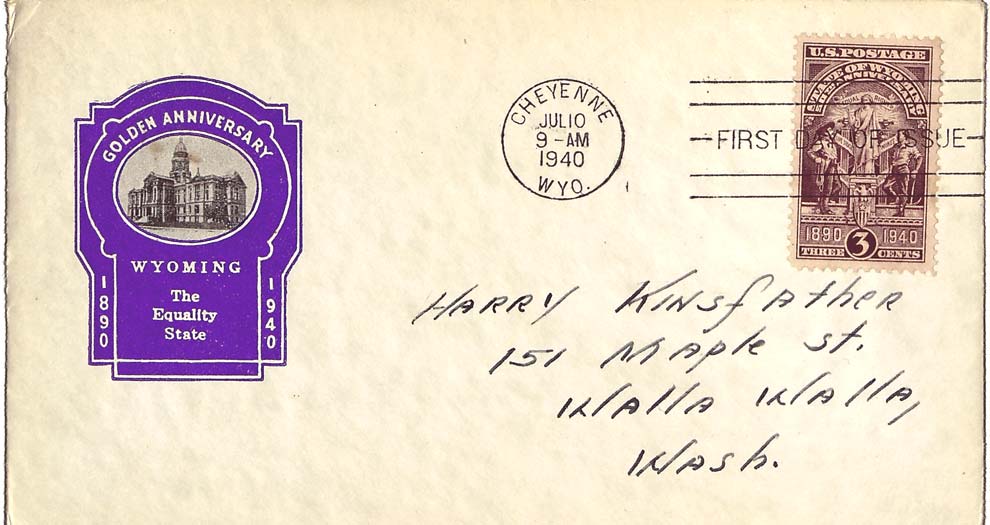 GOLDEN ANNIVERSARY
WYOMING
The
Equality
State
1890
1940
CHEYENNE
JUL 10
9-AM
1940
WYO.
FIRST DAY OF ISSUE
U.S. POSTAGE
STATE OF WYOMING
50TH ANNIVERSARY
1890 1940
THREE 3 CENTS
HARRY Kingsfather
151 Maple st.
Walla Walla,
Wash.